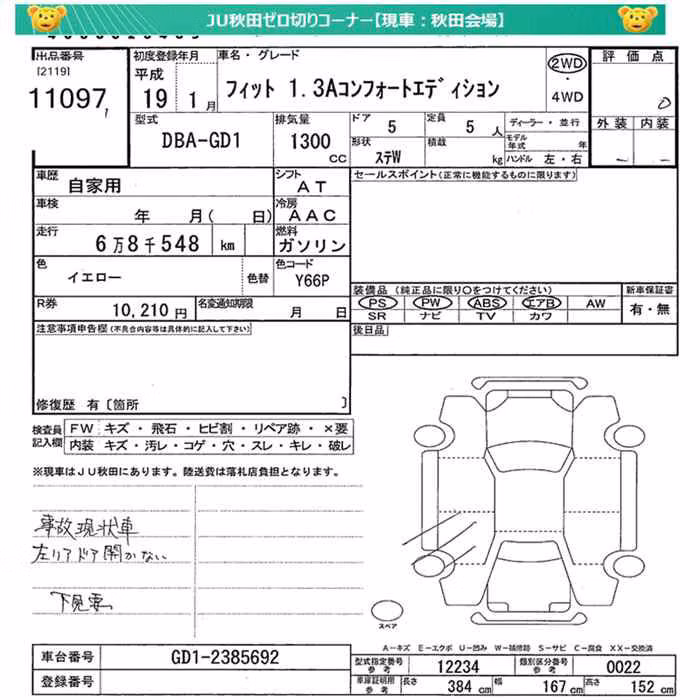 JU秋田ゼロ切りコーナー【現車：秋田会場】
出品番号 初度登録年月 車名・グレード 評価点
[2119] 平成 2WD
11097 19 1月 フィット 1.3Aコンフォートエディション 4WD 0
型式 排気量 ドア 5 定員 5人 ディーラー・並行 外装 内装
DBA-GD1 1300CC 形状 ステW 積載 kg モデル年式 年 ハンドル 左・右 － －
車歴 自家用 シフト AT セールスポイント(正常に機能するものに限ります)
車検 年 月( 日) 冷房 AAC
走行 6万8千548 km 燃料 ガソリン
色 イエロー 色替 色コード Y66P
装備品 (純正品に限り○をつけてください) 新車保証書
R券 10,210円 名変通知期限 月 日 PS PW ABS エアB AW 有・無
SR ナビ TV カワ
注意事項申告欄(不具合内容等は具体的に記入して下さい) 後日品
修復歴 有〔箇所 〕
検査員記入欄 FW キズ・飛石・ヒビ割・リペア跡・×要
内装 キズ・汚レ・コゲ・穴・スレ・キレ・破レ
※現車はJU秋田にあります。陸送費は落札店負担となります。
事故現状車
左リアドア開かない
下見要
スペア
A－キズ E－エクボ U－凹み W－補修跡 S－サビ C－腐食 XX－交換済
車台番号 GD1-2385692 型式指定番号 参考 12234 類別区分番号 参考 0022
登録番号 車庫証明用 参考 長さ 384cm 幅 167cm 高さ 152cm